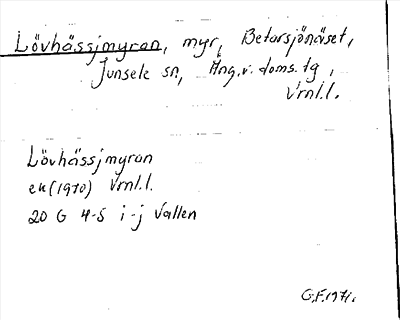 Lövhässjmyran, myr, Betarsjönäset,
Junsele sn, Ång.v. doms. tg,
Vrnl.l.
Lövhässjmyran
ek (1970) Vrnl.l.
20 G 4-5 i-j Vallen
G.F. 1971.